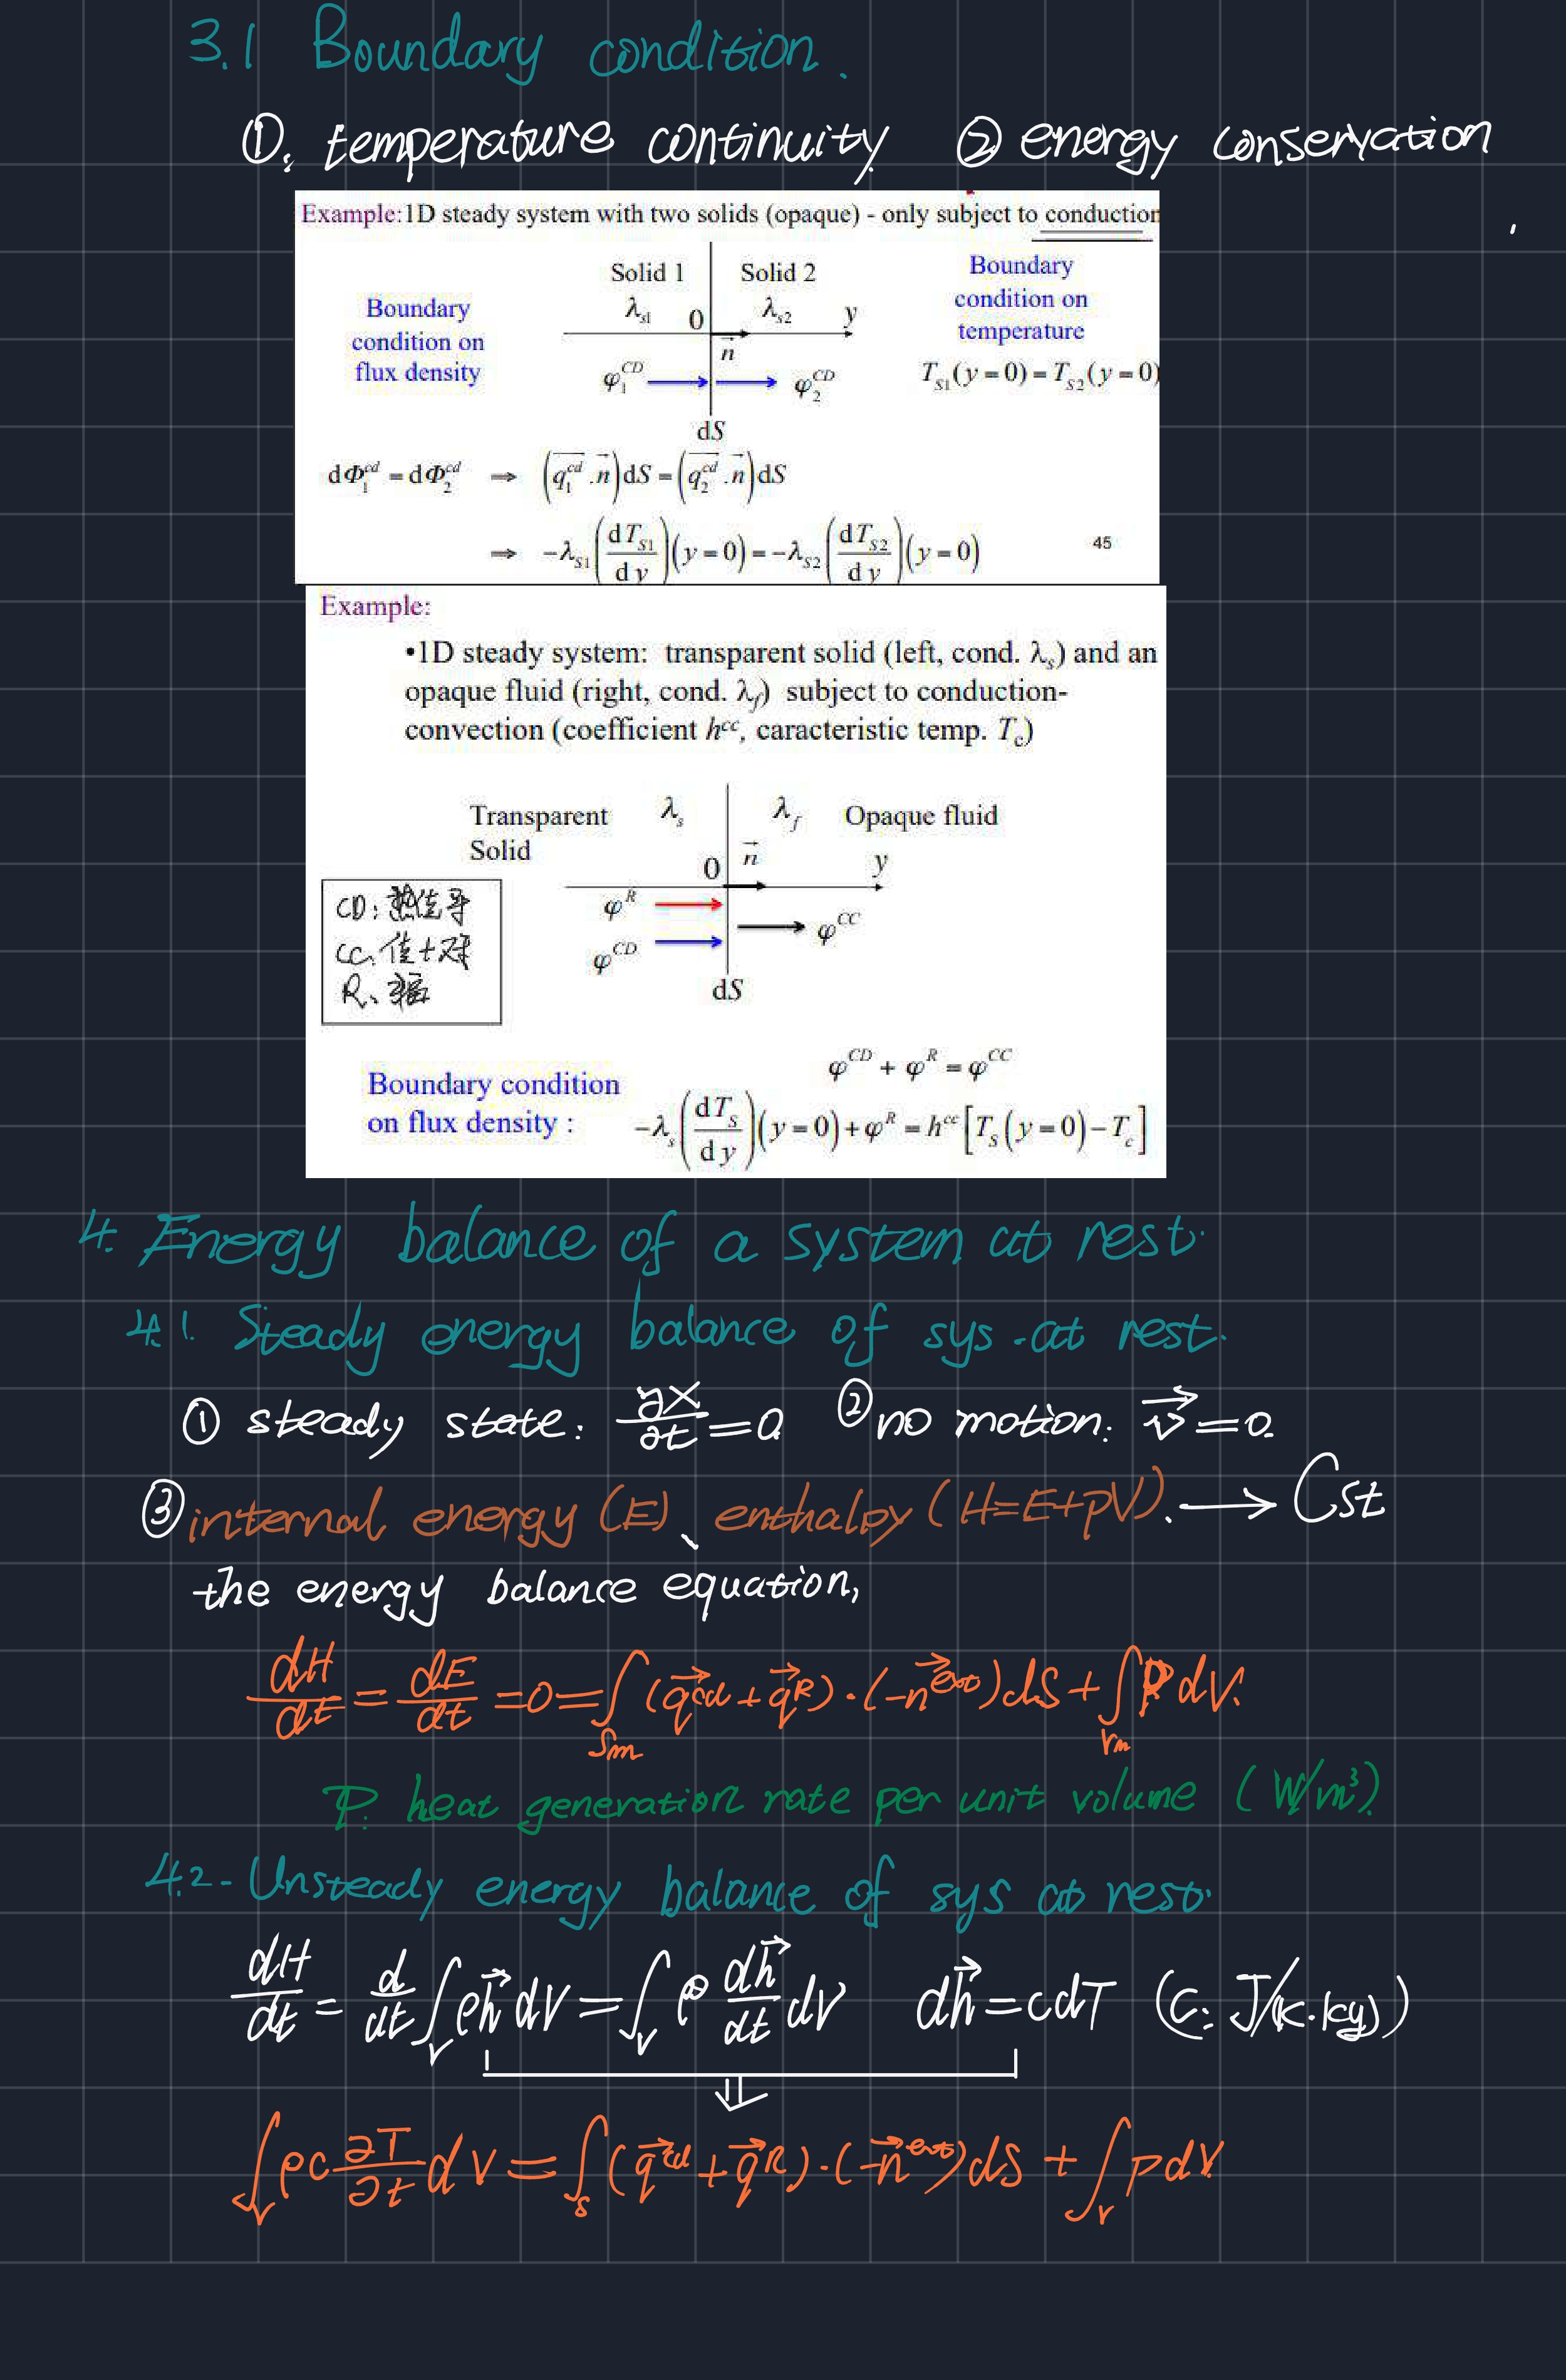 3.1 Boundary condition.
①. temperature continuity ② energy conservation
Example: 1D steady system with two solids (opaque) - only subject to conduction
Solid 1 Solid 2
Boundary condition on flux density
λs1 0 λs2 y
n⃗
φ₁^CD φ₂^CD
dS
Boundary condition on temperature
T_S1(y = 0) = T_S2(y = 0)
dΦ₁^cd = dΦ₂^cd ⇒ (q₁^cd . n⃗)dS = (q₂^cd . n⃗)dS
⇒ -λ_S1 (dT_S1/dy)(y = 0) = -λ_S2 (dT_S2/dy)(y = 0)
45
Example:
•1D steady system: transparent solid (left, cond. λs) and an
opaque fluid (right, cond. λf) subject to conduction-
convection (coefficient h^cc, caracteristic temp. Tc)
Transparent Solid λs λf Opaque fluid
0 n⃗ y
φ^R
φ^CD
φ^CC
dS
CD: 热传导
CC. 传+对
R、辐
φ^CD + φ^R = φ^CC
Boundary condition
on flux density :
-λs (dT_S/dy)(y = 0) + φ^R = h^cc [T_s(y = 0) - T_c]
4. Energy balance of a system at rest.
4.1. Steady energy balance of sys. at rest.
① steady state: ∂X/∂t = 0 ② no motion: v⃗ = 0.
③ internal energy (E)、enthalpy (H=E+pV). → Cst
the energy balance equation,
dH/dt = dE/dt = 0 = ∫_Sm (q⃗^cd + q⃗^R)·(-n⃗^ext) dS + ∫_Vm P dV.
P: heat generation rate per unit volume (W/m³)
4.2- Unsteady energy balance of sys at rest.
dH/dt = d/dt ∫_V ρh⃗ dV = ∫_V ρ dh⃗/dt dV dh⃗ = cdT (C: J/K·kg)
⇓
∫_V ρc ∂T/∂t dV = ∫_S (q⃗^cd + q⃗^R)·(-n⃗^ext) dS + ∫_V P dV